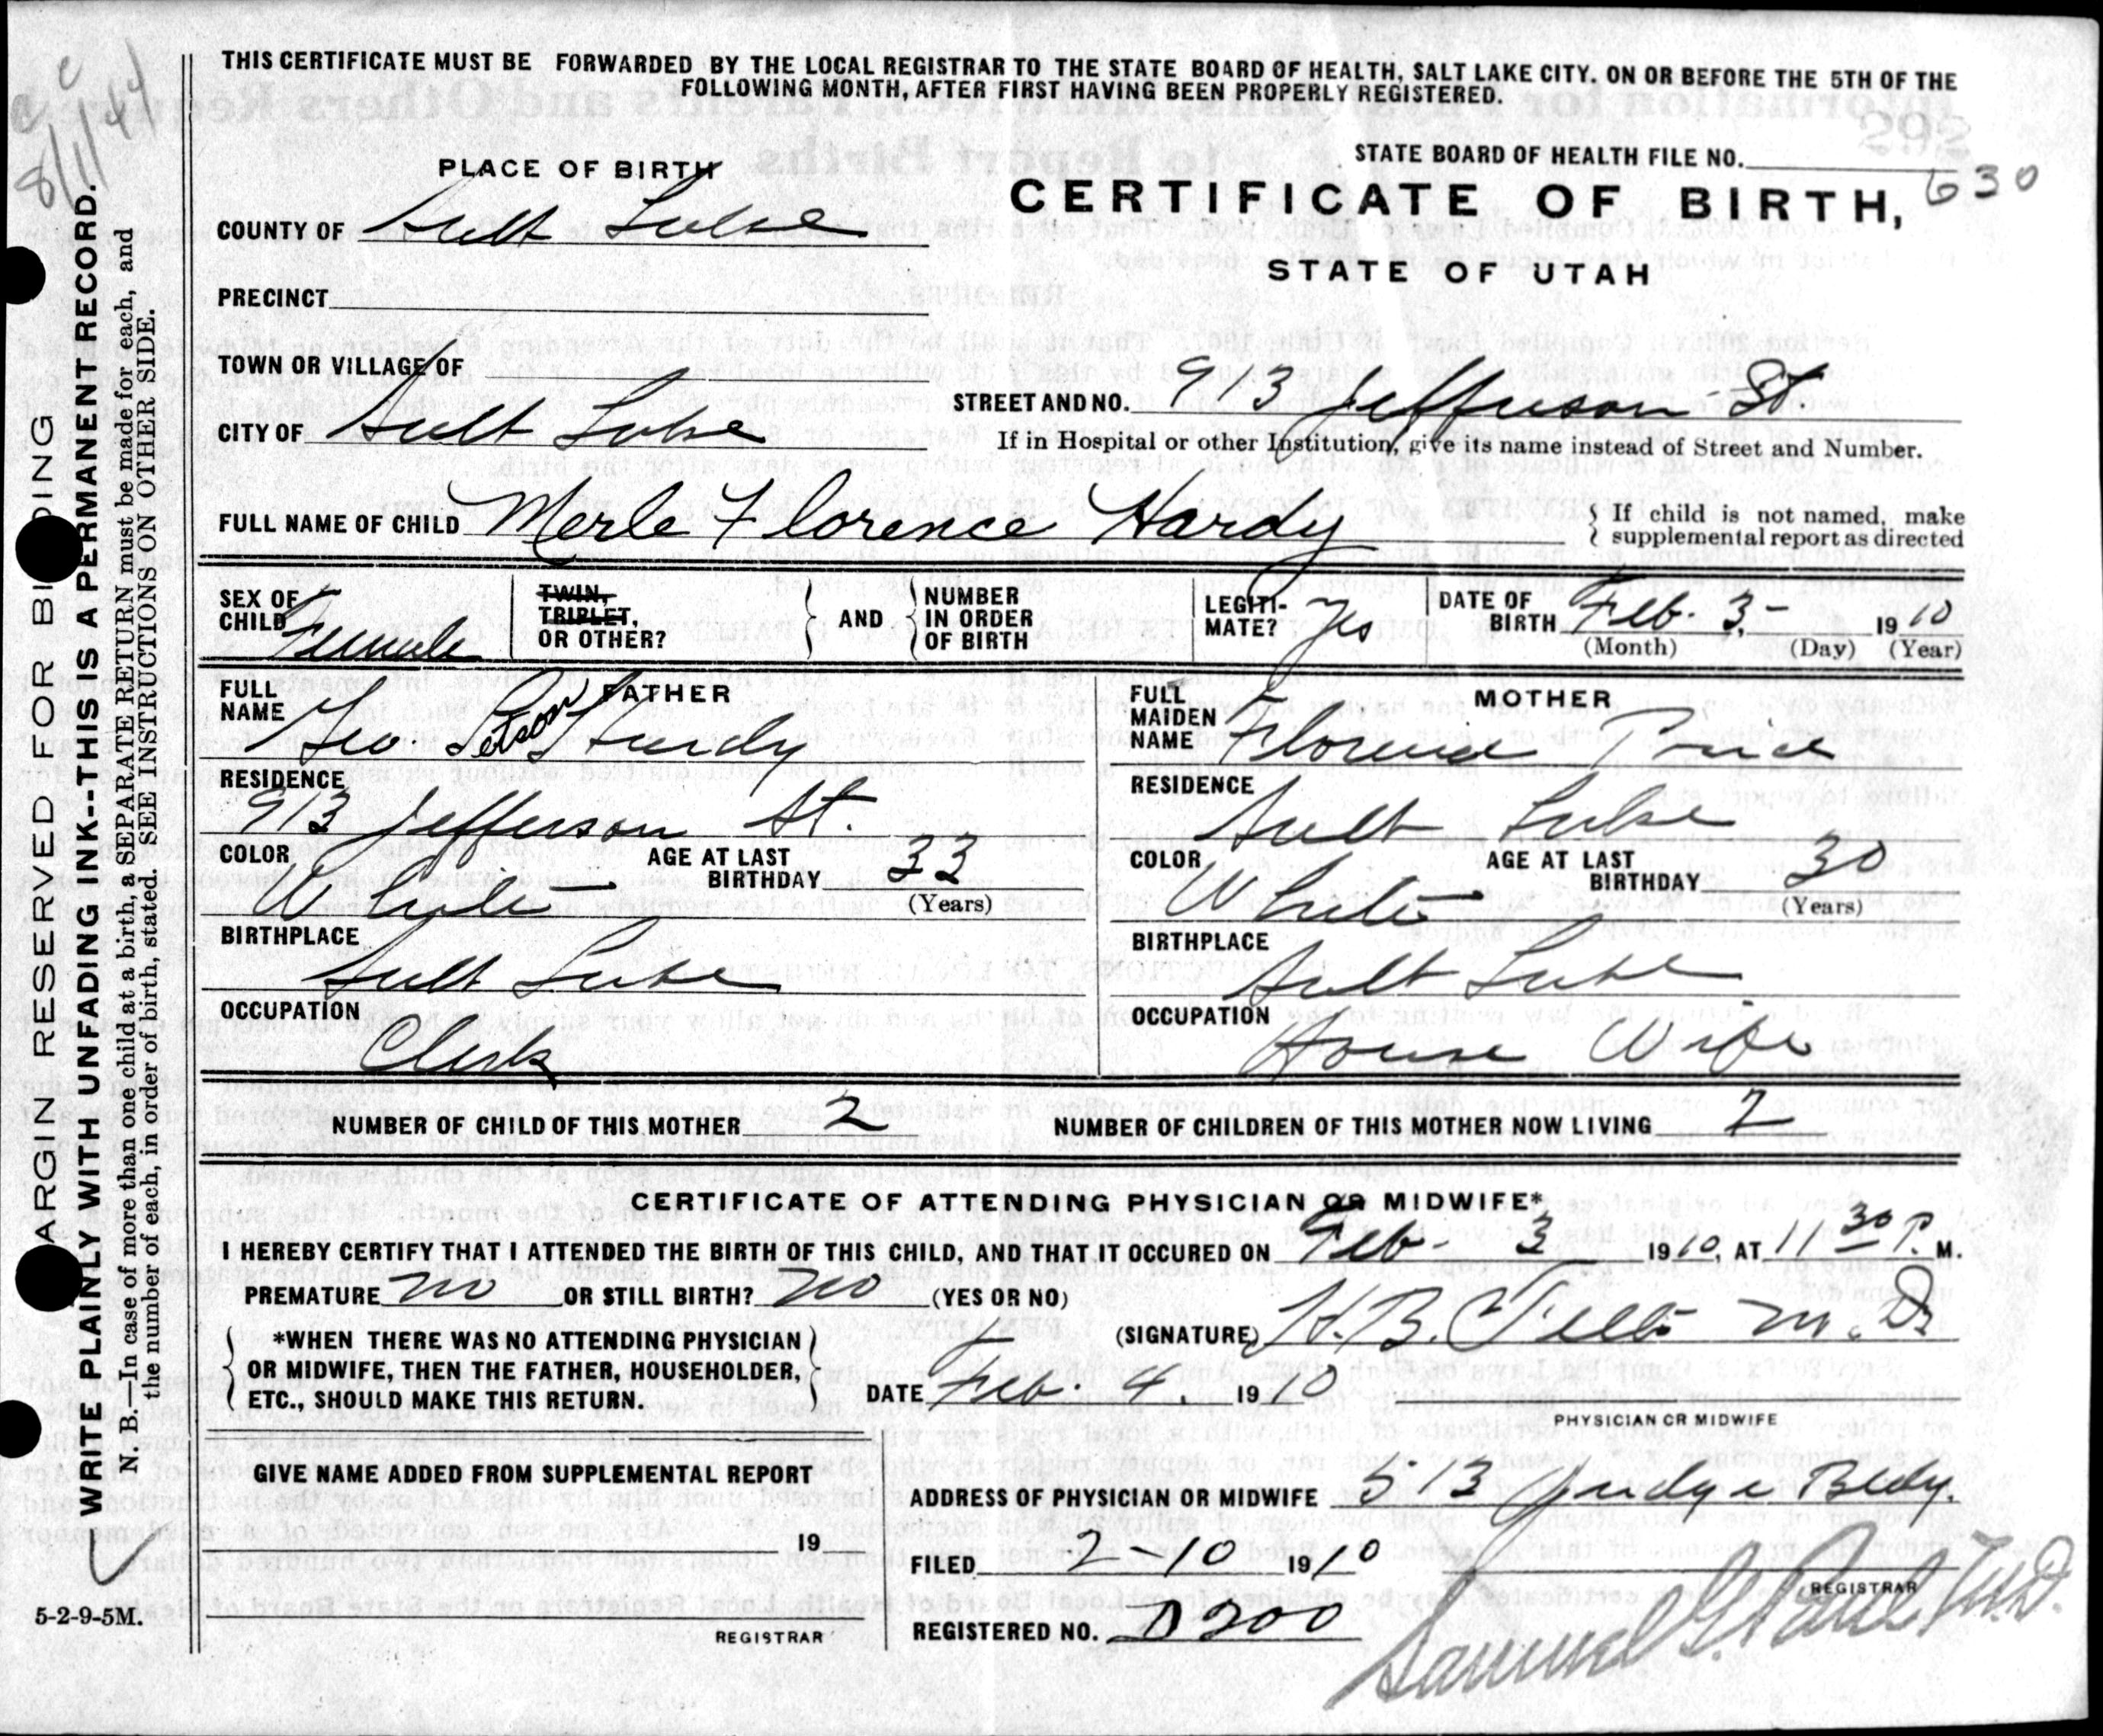 THIS CERTIFICATE MUST BE FORWARDED BY THE LOCAL REGISTRAR TO THE STATE BOARD OF HEALTH, SALT LAKE CITY. ON OR BEFORE THE 5TH OF THE
FOLLOWING MONTH, AFTER FIRST HAVING BEEN PROPERLY REGISTERED.
8/11/44
STATE BOARD OF HEALTH FILE NO.
630
PLACE OF BIRTH
CERTIFICATE OF BIRTH,
STATE OF UTAH
COUNTY OF Salt Lake
PRECINCT
TOWN OR VILLAGE OF
STREET AND NO. 913 Jefferson St.
CITY OF Salt Lake
If in Hospital or other Institution, give its name instead of Street and Number.
FULL NAME OF CHILD Merle Florence Hardy
If child is not named, make
supplemental report as directed
SEX OF CHILD Female
TWIN, TRIPLET, OR OTHER?
AND
NUMBER IN ORDER OF BIRTH
LEGITI-MATE? Yes
DATE OF BIRTH Feb. 3,- 1910
(Month) (Day) (Year)
FATHER
FULL NAME Geo Hardy
RESIDENCE
913 Jefferson St.
COLOR White
AGE AT LAST BIRTHDAY 33
(Years)
BIRTHPLACE
Salt Lake
OCCUPATION
Clerk
MOTHER
FULL MAIDEN NAME Florence Price
RESIDENCE
Salt Lake
COLOR White
AGE AT LAST BIRTHDAY 30
(Years)
BIRTHPLACE
Salt Lake
OCCUPATION
House Wife
NUMBER OF CHILD OF THIS MOTHER 2
NUMBER OF CHILDREN OF THIS MOTHER NOW LIVING 2
CERTIFICATE OF ATTENDING PHYSICIAN OR MIDWIFE*
I HEREBY CERTIFY THAT I ATTENDED THE BIRTH OF THIS CHILD, AND THAT IT OCCURED ON Feb. 3 1910, AT 11 30 P. M.
PREMATURE no OR STILL BIRTH? no (YES OR NO)
*WHEN THERE WAS NO ATTENDING PHYSICIAN
OR MIDWIFE, THEN THE FATHER, HOUSEHOLDER,
ETC., SHOULD MAKE THIS RETURN.
(SIGNATURE) H. B. M. D.
DATE Feb. 4, 1910
PHYSICIAN OR MIDWIFE
GIVE NAME ADDED FROM SUPPLEMENTAL REPORT
ADDRESS OF PHYSICIAN OR MIDWIFE 513 Judge Bldy.
19
FILED 2-10 1910
REGISTRAR
REGISTERED NO. D200
REGISTRAR
Samuel G. Paul M.D.
5-2-9-5M.
ARGIN RESERVED FOR BI DING
WRITE PLAINLY WITH UNFADING INK--THIS IS A PERMANENT RECORD.
N. B.—In case of more than one child at a birth, a SEPARATE RETURN must be made for each, and
the number of each, in order of birth, stated. SEE INSTRUCTIONS ON OTHER SIDE.